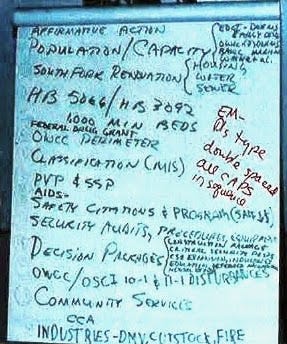 AFFIRMATIVE ACTION
POPULATION/CAPACITY
SOUTH FORK RENOVATION { HOUSING
WATER
SEWER
HB 5066/HB 3092
1000 MIN BEDS
FEDERAL DRUG GRANT
OWCC PERIMETER
CLASSIFICATION (MIS)
PVP & SSP
AIDS-
SAFETY CITATIONS & PROGRAM (SAIF $$)
SECURITY AUDITS, PROCEDURES,
DECISION PACKAGES {
OWCC/OSCI 10-1 & 11-1 DISTURBANCES
COMMUNITY SERVICES
CCA
INDUSTRIES-DMV, CUTSTOCK, FIRE
EM-
Pls type
double spaced
all CAPS
in sequence